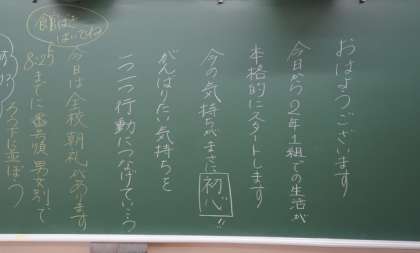 おはようございます
今日から2年1組での生活が
本格的にスタートします
今の気持ちがまさに初心!!
がんばりたい気持ちを
一つ一つ行動につなげていこう
今日は全校朝礼があります
8:25までに番号順男女別で
ろう下に並ぼう
館ばき
はいてね